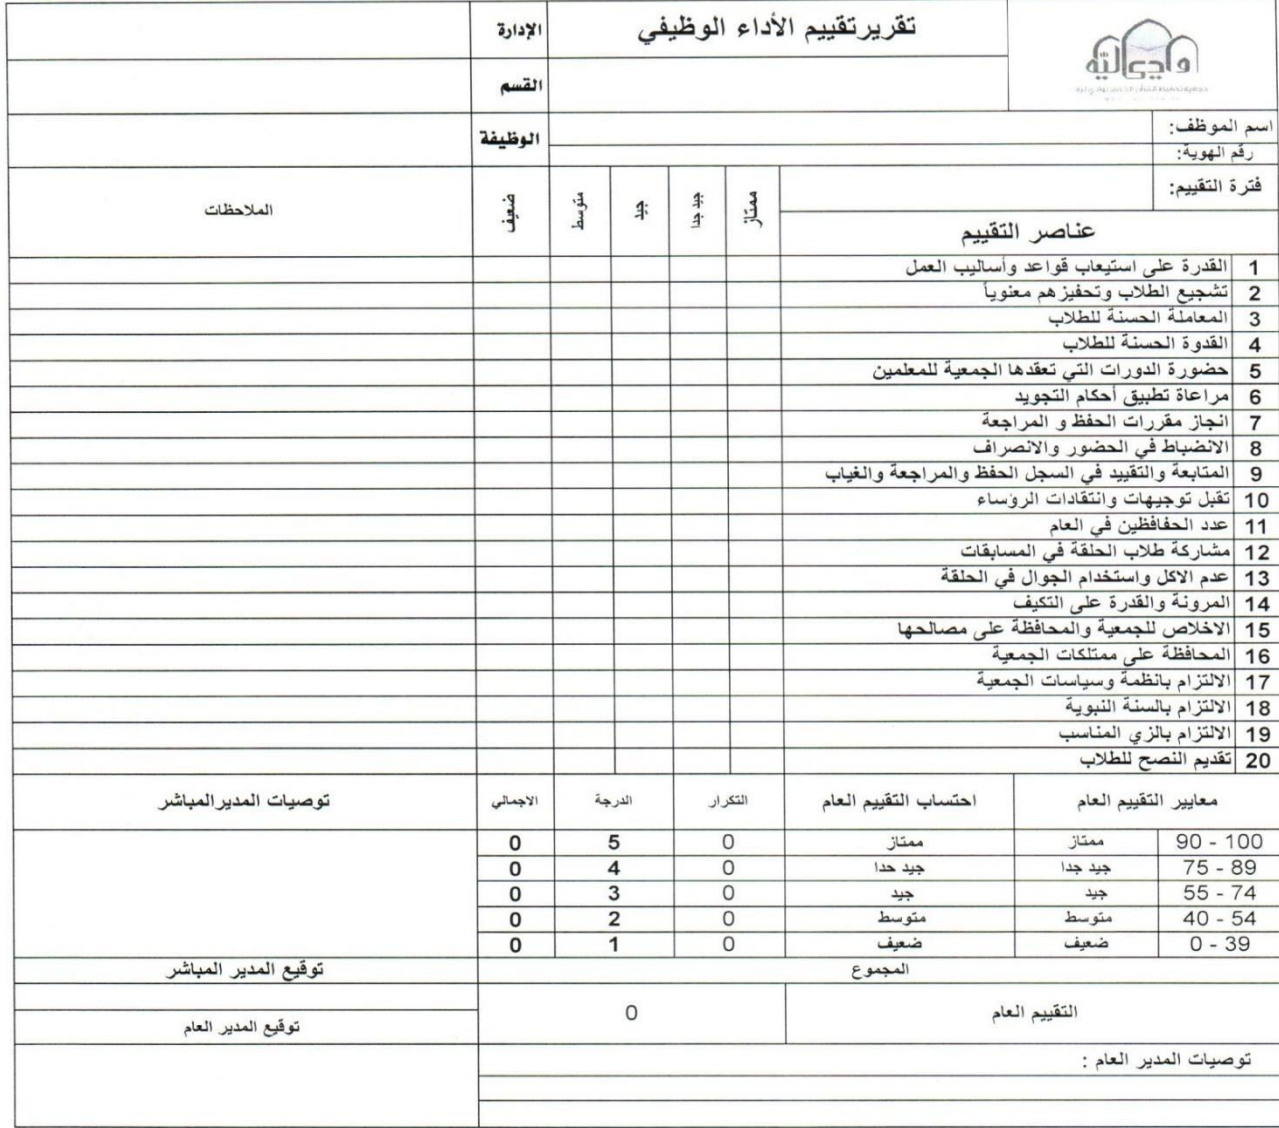 وادي لية
تقريرتقييم الأداء الوظيفي
الإدارة
القسم
الوظيفة
اسم الموظف:
رقم الهوية:
فترة التقييم:
عناصر التقييم
ممتاز
جيد جدا
جيد
متوسط
ضعيف
الملاحظات
1 القدرة على استيعاب قواعد وأساليب العمل
2 تشجيع الطلاب وتحفيزهم معنوياً
3 المعاملة الحسنة للطلاب
4 القدوة الحسنة للطلاب
5 حضورة الدورات التي تعقدها الجمعية للمعلمين
6 مراعاة تطبيق أحكام التجويد
7 انجاز مقررات الحفظ و المراجعة
8 الانضباط في الحضور والانصراف
9 المتابعة والتقييد في السجل الحفظ والمراجعة والغياب
10 تقبل توجيهات وانتقادات الرؤساء
11 عدد الحفافظين في العام
12 مشاركة طلاب الحلقة في المسابقات
13 عدم الاكل واستخدام الجوال في الحلقة
14 المرونة والقدرة على التكيف
15 الاخلاص للجمعية والمحافظة على مصالحها
16 المحافظة على ممتلكات الجمعية
17 الالتزام بانظمة وسياسات الجمعية
18 الالتزام بالسنة النبوية
19 الالتزام بالزي المناسب
20 تقديم النصح للطلاب
معايير التقييم العام احتساب التقييم العام التكرار الدرجة الاجمالي توصيات المديرالمباشر
90 - 100 ممتاز ممتاز 0 5 0
75 - 89 جيد جدا جيد حدا 0 4 0
55 - 74 جيد جيد 0 3 0
40 - 54 متوسط متوسط 0 2 0
0 - 39 ضعيف ضعيف 0 1 0
المجموع
توقيع المدير المباشر
التقييم العام 0
توقيع المدير العام
توصيات المدير العام :